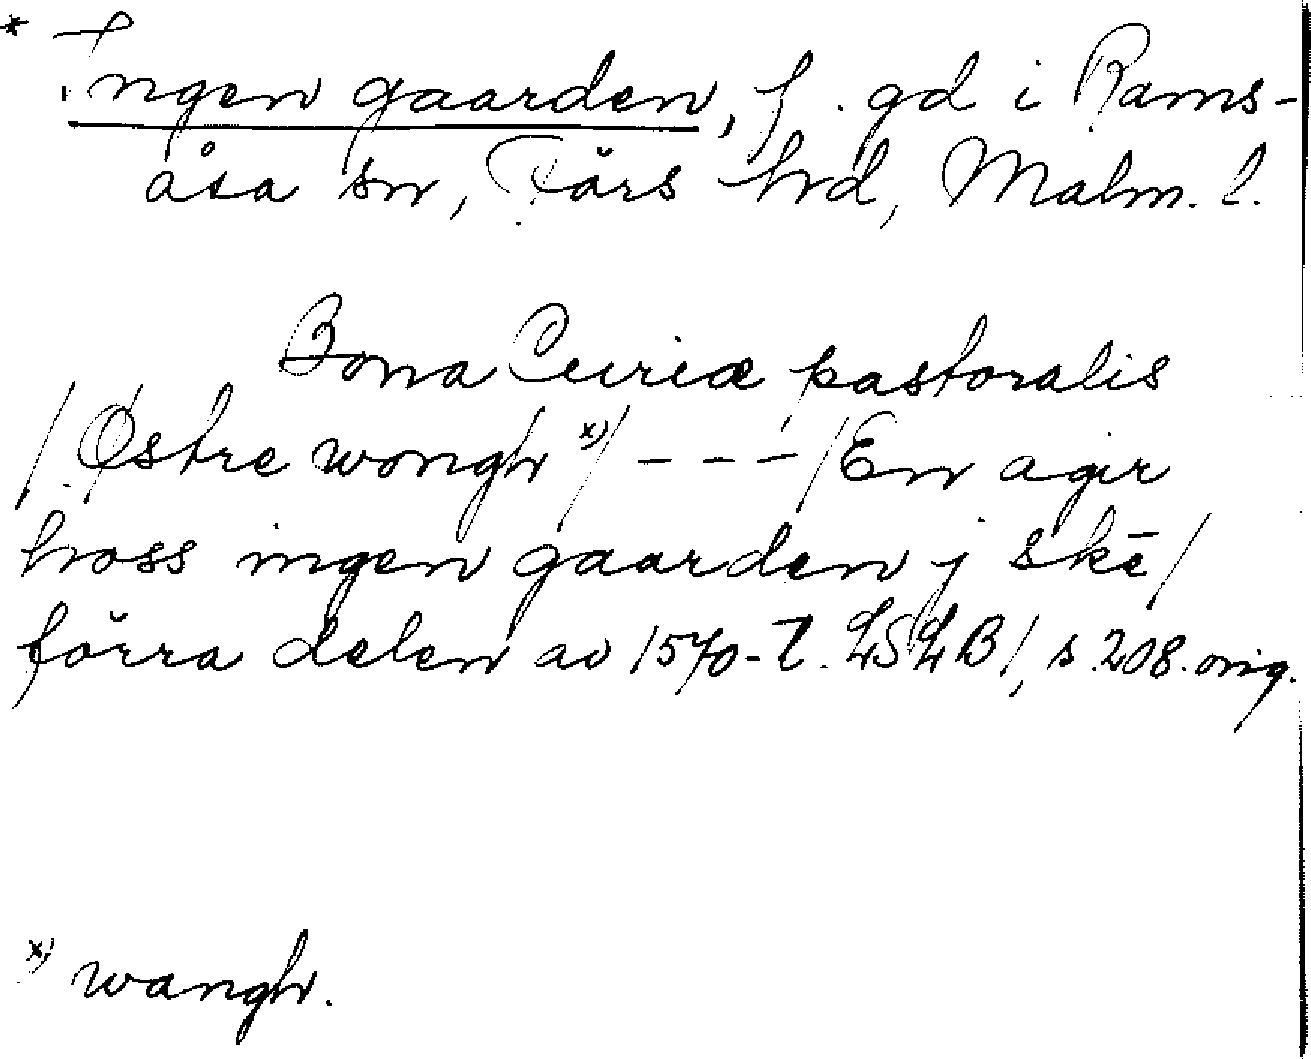 * Ingen gaarden, f. gd i Rams-
åsa sn, Färs hd, Malm. l.
Bona Curiæ pastoralis
/Østre wongh x)/ - - - /En agir
hoss ingen gaarden j skē/
förra delen av 1570-t. LSLB/, s. 208. orig.
x) wangh.